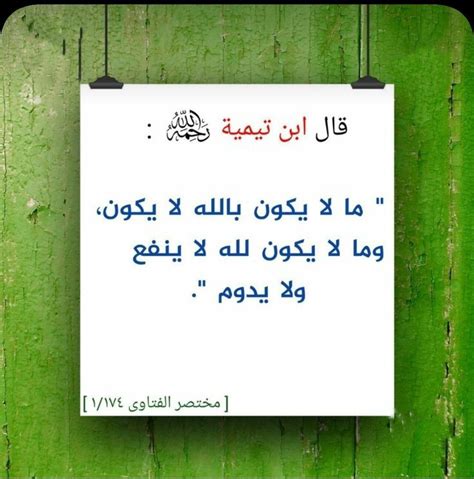 قال ابن تيمية رحمه الله :
" ما لا يكون بالله لا يكون،
وما لا يكون لله لا ينفع
ولا يدوم ".
[ مختصر الفتاوى ١/١٧٤ ]